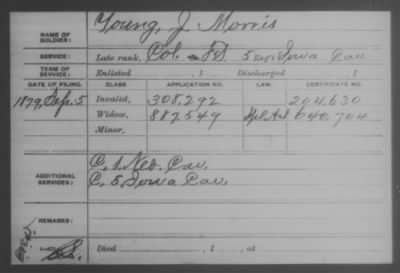 NAME OF SOLDIER: Young, J. Morris
SERVICE: Late rank, Col. F.S. 5 Reg't Iowa Cav
TERM OF SERVICE: Enlisted , 1 Discharged , 1
DATE OF FILING. CLASS APPLICATION NO. LAW. CERTIFICATE NO.
1879, Sep. 5 Invalid, 308.292 204.630
Widow, 887549 640.704
Minor,
C. 1. Neb. Cav.
ADDITIONAL SERVICES: C. 5 Iowa Cav.
REMARKS:
Died , 1 , at